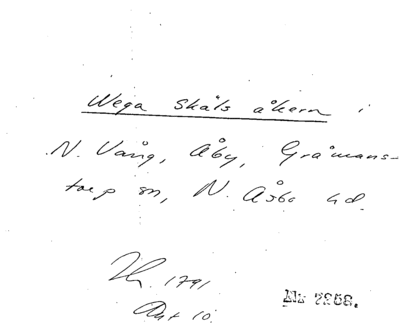 Wega Skåls åkern i
N. Vång, Åby, Gråmans-
torp sn, N. Åsbo hd.
1791
Akt 10.
Nr 2258.